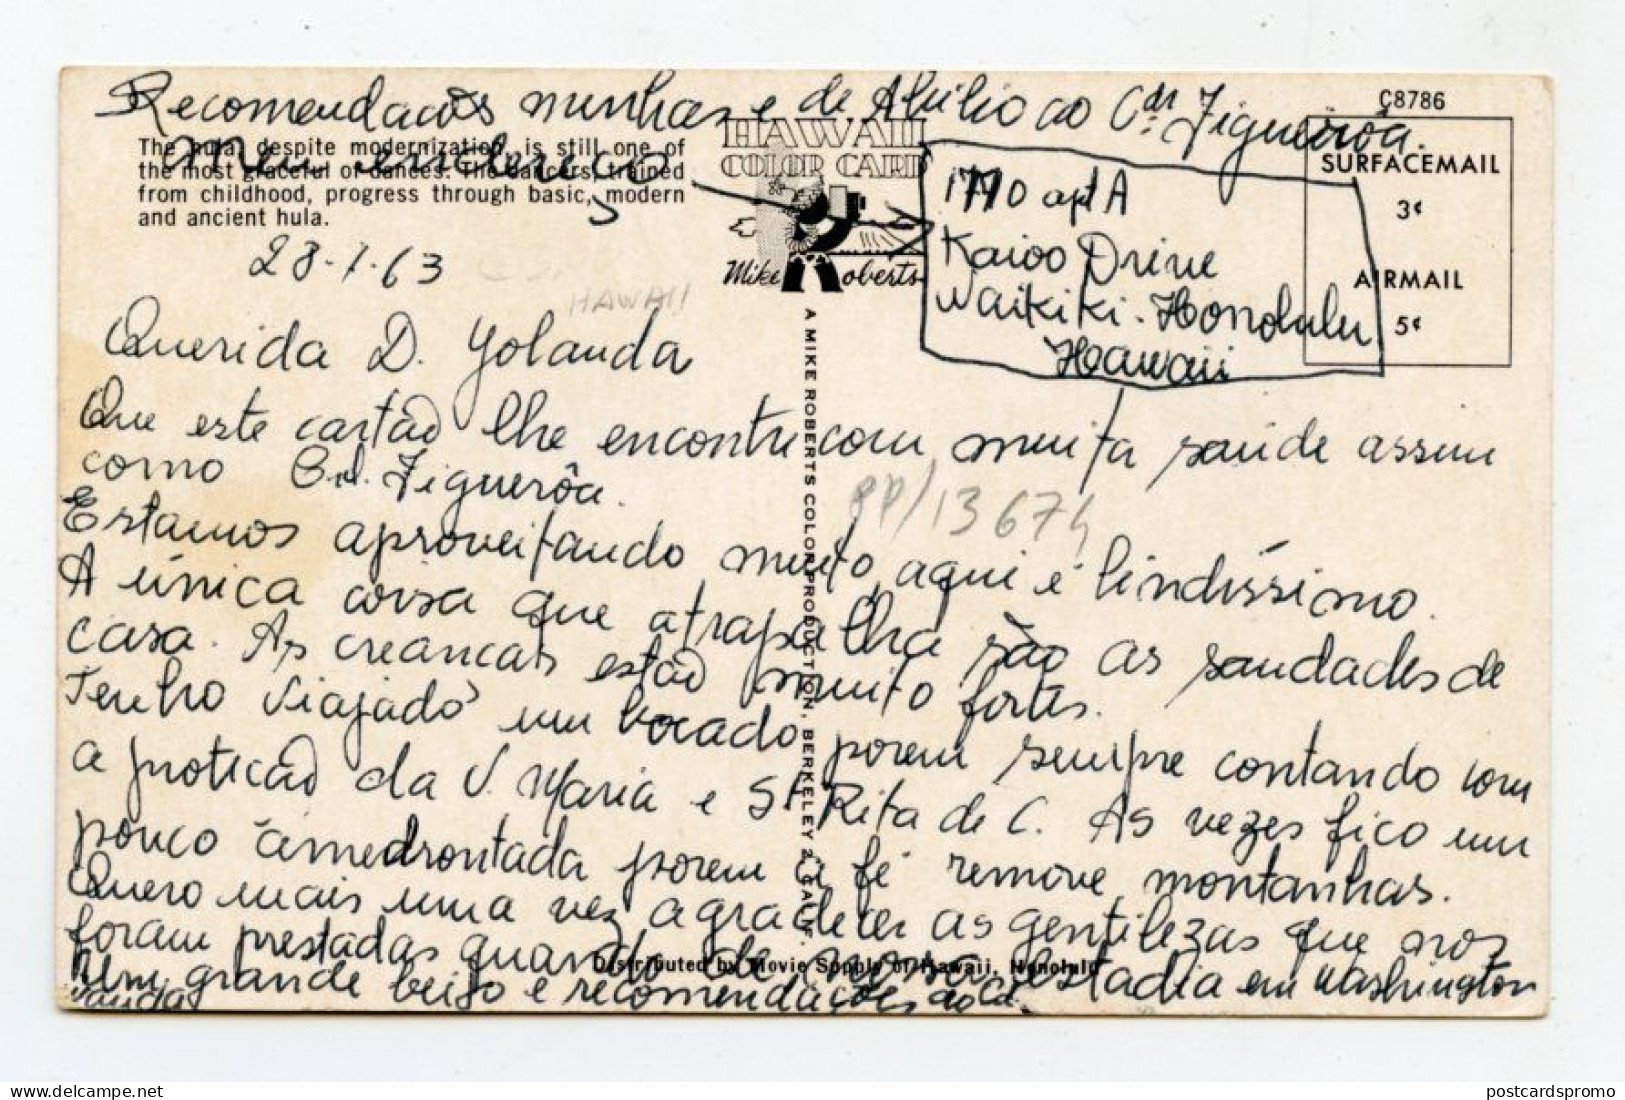 Recomendações minhas e de Abilio ao Cdt Figueirôa.
meu endereço
C8786
The hula, despite modernization, is still one of
the most graceful of dances. The dancers, trained
from childhood, progress through basic, modern
and ancient hula.
HAWAII
COLOR CARD
Mike Roberts
SURFACEMAIL
3¢
AIRMAIL
5¢
apt A
Kaioo Drive
Waikiki. Honolulu
Hawaii
28-1-63
HAWAII
Querida D. Yolanda
Que este cartão lhe encontre com muita saúde assim
como Figuerôa.
Estamos aproveitando muito, aqui é lindíssimo.
A única coisa que atrapalha são as saudades de
casa. As creancas estão muito fortes.
Tenho viajado um bocado porem sempre contando com
a proteção da V. Maria e Sta Rita de C. As vezes fico um
pouco amedrontada porem a fé remove montanhas.
Quero mais uma vez agradecer as gentilezas que nos
foram prestadas quando de nossa estadia em Washington
Um grande beijo e recomendações ao
Vanda
PP/13674
A MIKE ROBERTS COLOR PRODUCTION, BERKELEY 2, CALIF.
Distributed by Movie Supply of Hawaii, Honolulu
postcardspromo